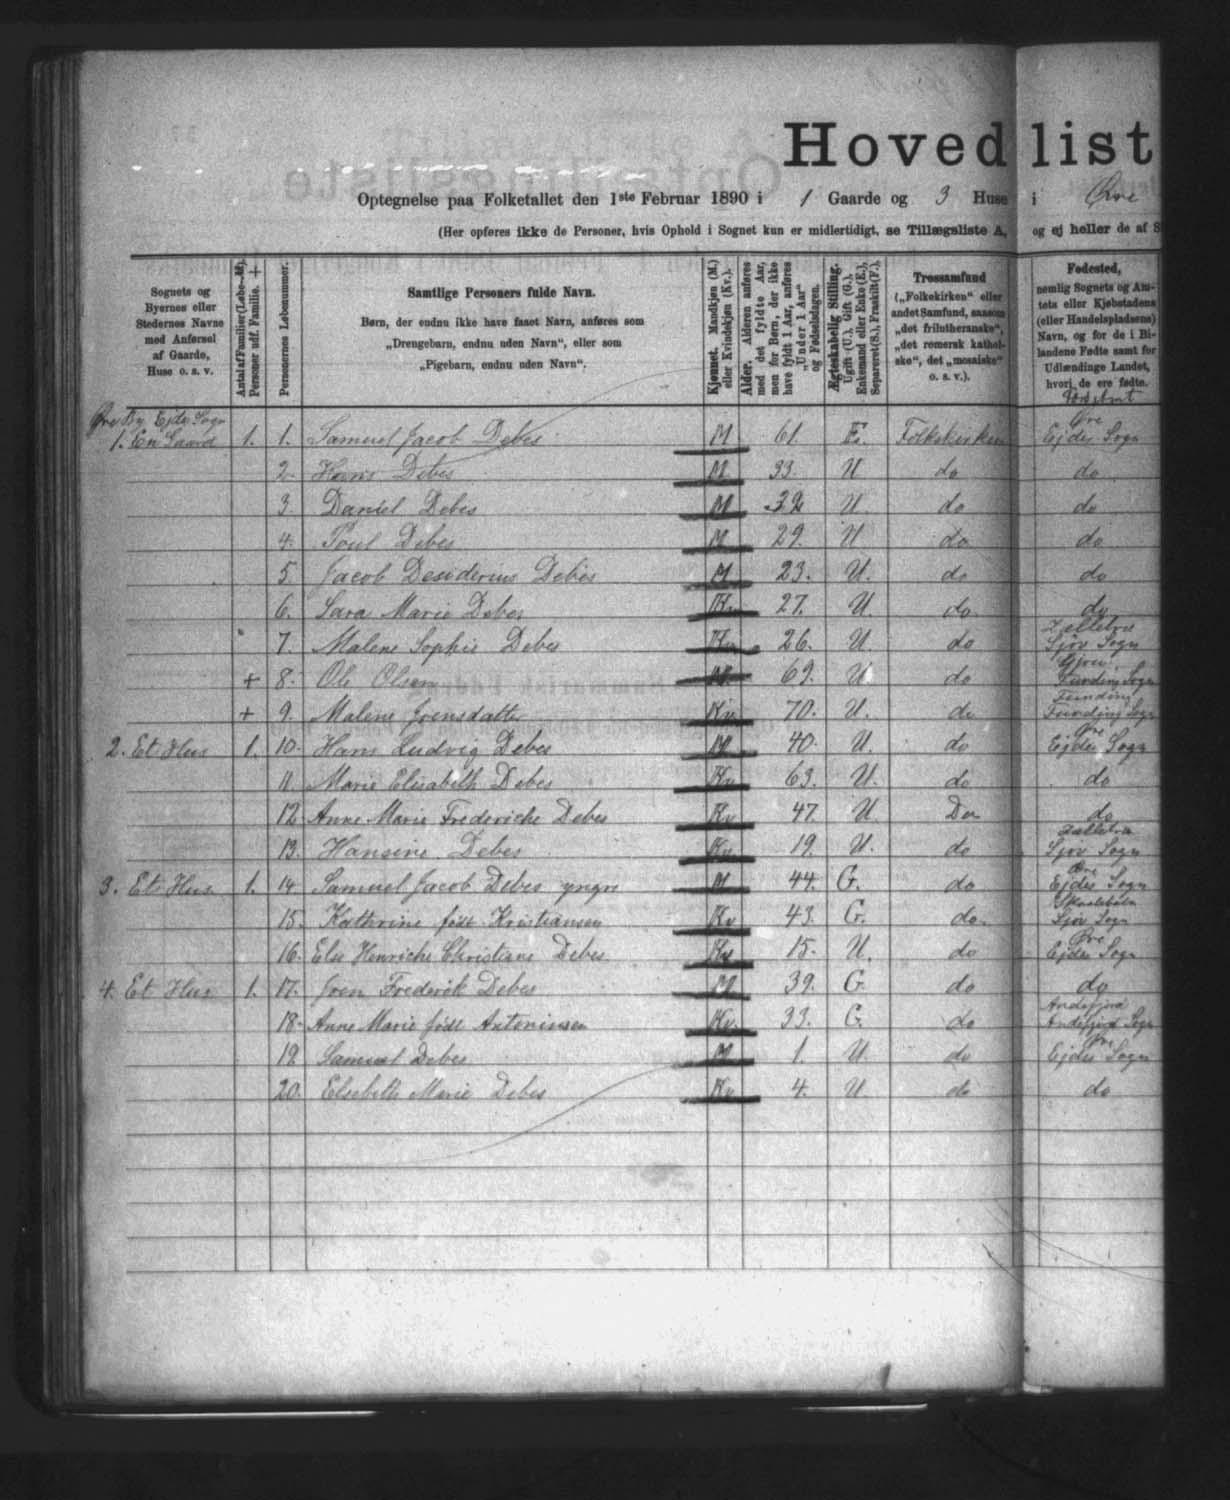 Hovedlist
Optegnelse paa Folketallet den 1ste Februar 1890 i 1 Gaarde og 3 Huse i Øre
(Her opføres ikke de Personer, hvis Ophold i Sognet kun er midlertidigt, se Tillægsliste A, og ej heller de af S
Sognets og Byernes eller Stedernes Navne med Anførsel af Gaarde, Huse o. s. v.
Antal af Familier (Løbe-No). Personer udf. Familie. +
Personernes Løbenummer.
Samtlige Personers fulde Navn.
Børn, der endnu ikke have faaet Navn, anføres som
„Drengebarn, endnu uden Navn“, eller som
„Pigebarn, endnu uden Navn“.
Kjønnet. Mandkjøn (M.) eller Kvindekjøn (Kv.).
Alder. Alderen anføres med det fyldte Aar, men for Børn, der ikke have fyldt 1 Aar, anføres „Under 1 Aar“ og Fødselsdagen.
Ægteskabelig Stilling. Ugift (U.), Gift (G.), Enkemand eller Enke (E.), Separeret (S.), Fraskilt (F.).
Trossamfund („Folkekirken“ eller andet Samfund, saasom „det frilutheranske“, „det romersk katholske“, det „mosaiske“ o. s. v.).
Fødested, nemlig Sognets og Amtets eller Kjøbstadens (eller Handelspladsens) Navn, og for de i Bilandene Fødte samt for Udlændinge Landet, hvori de ere fødte.
Øre By Ejde Sogn
Øre
1. En Gaard 1. 1. Samuel Jacob Debes M 61. E. Folkekirken Ejde Sogn
2. Hans Debes M 33. U do do
3. Daniel Debes M 32 U. do do
4. Poul Debes M 29. U do do
5. Jacob Desiderius Debes M 23. U. do do
6. Sara Marie Debes Kv 27. U. do do
7. Malene Sophie Debes Kv 26. U. do Sjov Sogn
+ 8. Ole Olsen M 69. U do Funding Sogn
Funding
+ 9. Malene Joensdatter Kv 70. U. do Funding Sogn
Øre
2. Et Hus 1. 10. Hans Ludvig Debes M 40. U. do Ejde Sogn
11. Marie Elisabeth Debes Kv 63. U. do do
12 Anne Marie Frederiche Debes Kv 47. U Do do
13. Hansine Debes Kv 19. U. do Sjov Sogn
Øre
3. Et Hus 1. 14 Samuel Jacob Debes yngre M 44. G. do Ejde Sogn
15. Kathrine født Kristiansen Kv 43. G. do. Sjov Sogn
Øre
16. Else Henriche Christiane Debes Kv 15. U. do Ejde Sogn
4. Et Hus 1. 17. Joen Frederik Debes M 39. G do do
Andefjord
18. Anne Marie født Antoniusen Kv. 33. G. do Andefjord Sogn
Øre
19 Samuel Debes M 1. U. do Ejde Sogn
20. Elsebeth Marie Debes Kv 4. U do do